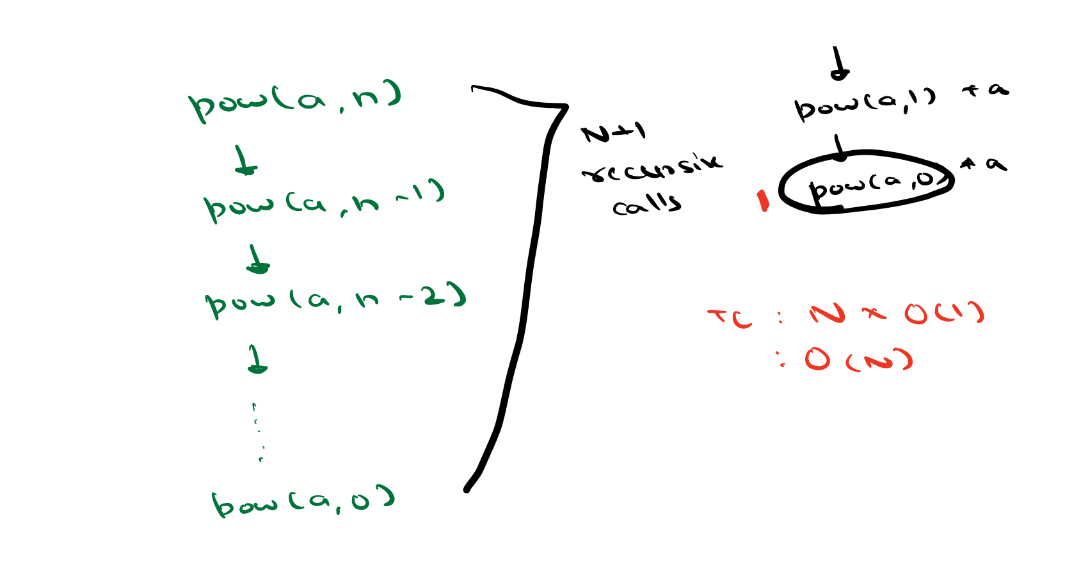 pow(a,n)
pow(a,n-1)
pow(a,n-2)
pow(a,0)
N+1
recursive
calls
pow(a,1) * a
pow(a,0) * a
1
TC : N * O(1)
: O(N)